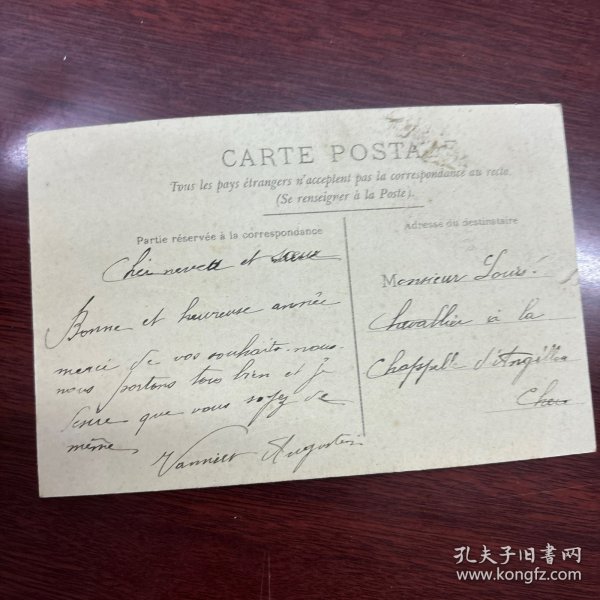 CARTE POSTA
Tous les pays étrangers n'acceptent pas la correspondance au recto.
(Se renseigner à la Poste).
Partie réservée à la correspondance
Adresse du destinataire
Cher neveu et
Bonne et heureuse année
merci de vos souhaits nous
nous portons tous bien et je
que vous soyez de
même
Augustin
Monsieur Louis
Chevallier à la
Chappelle d'Angillon
Cher
孔夫子旧书网
www.kongfz.com